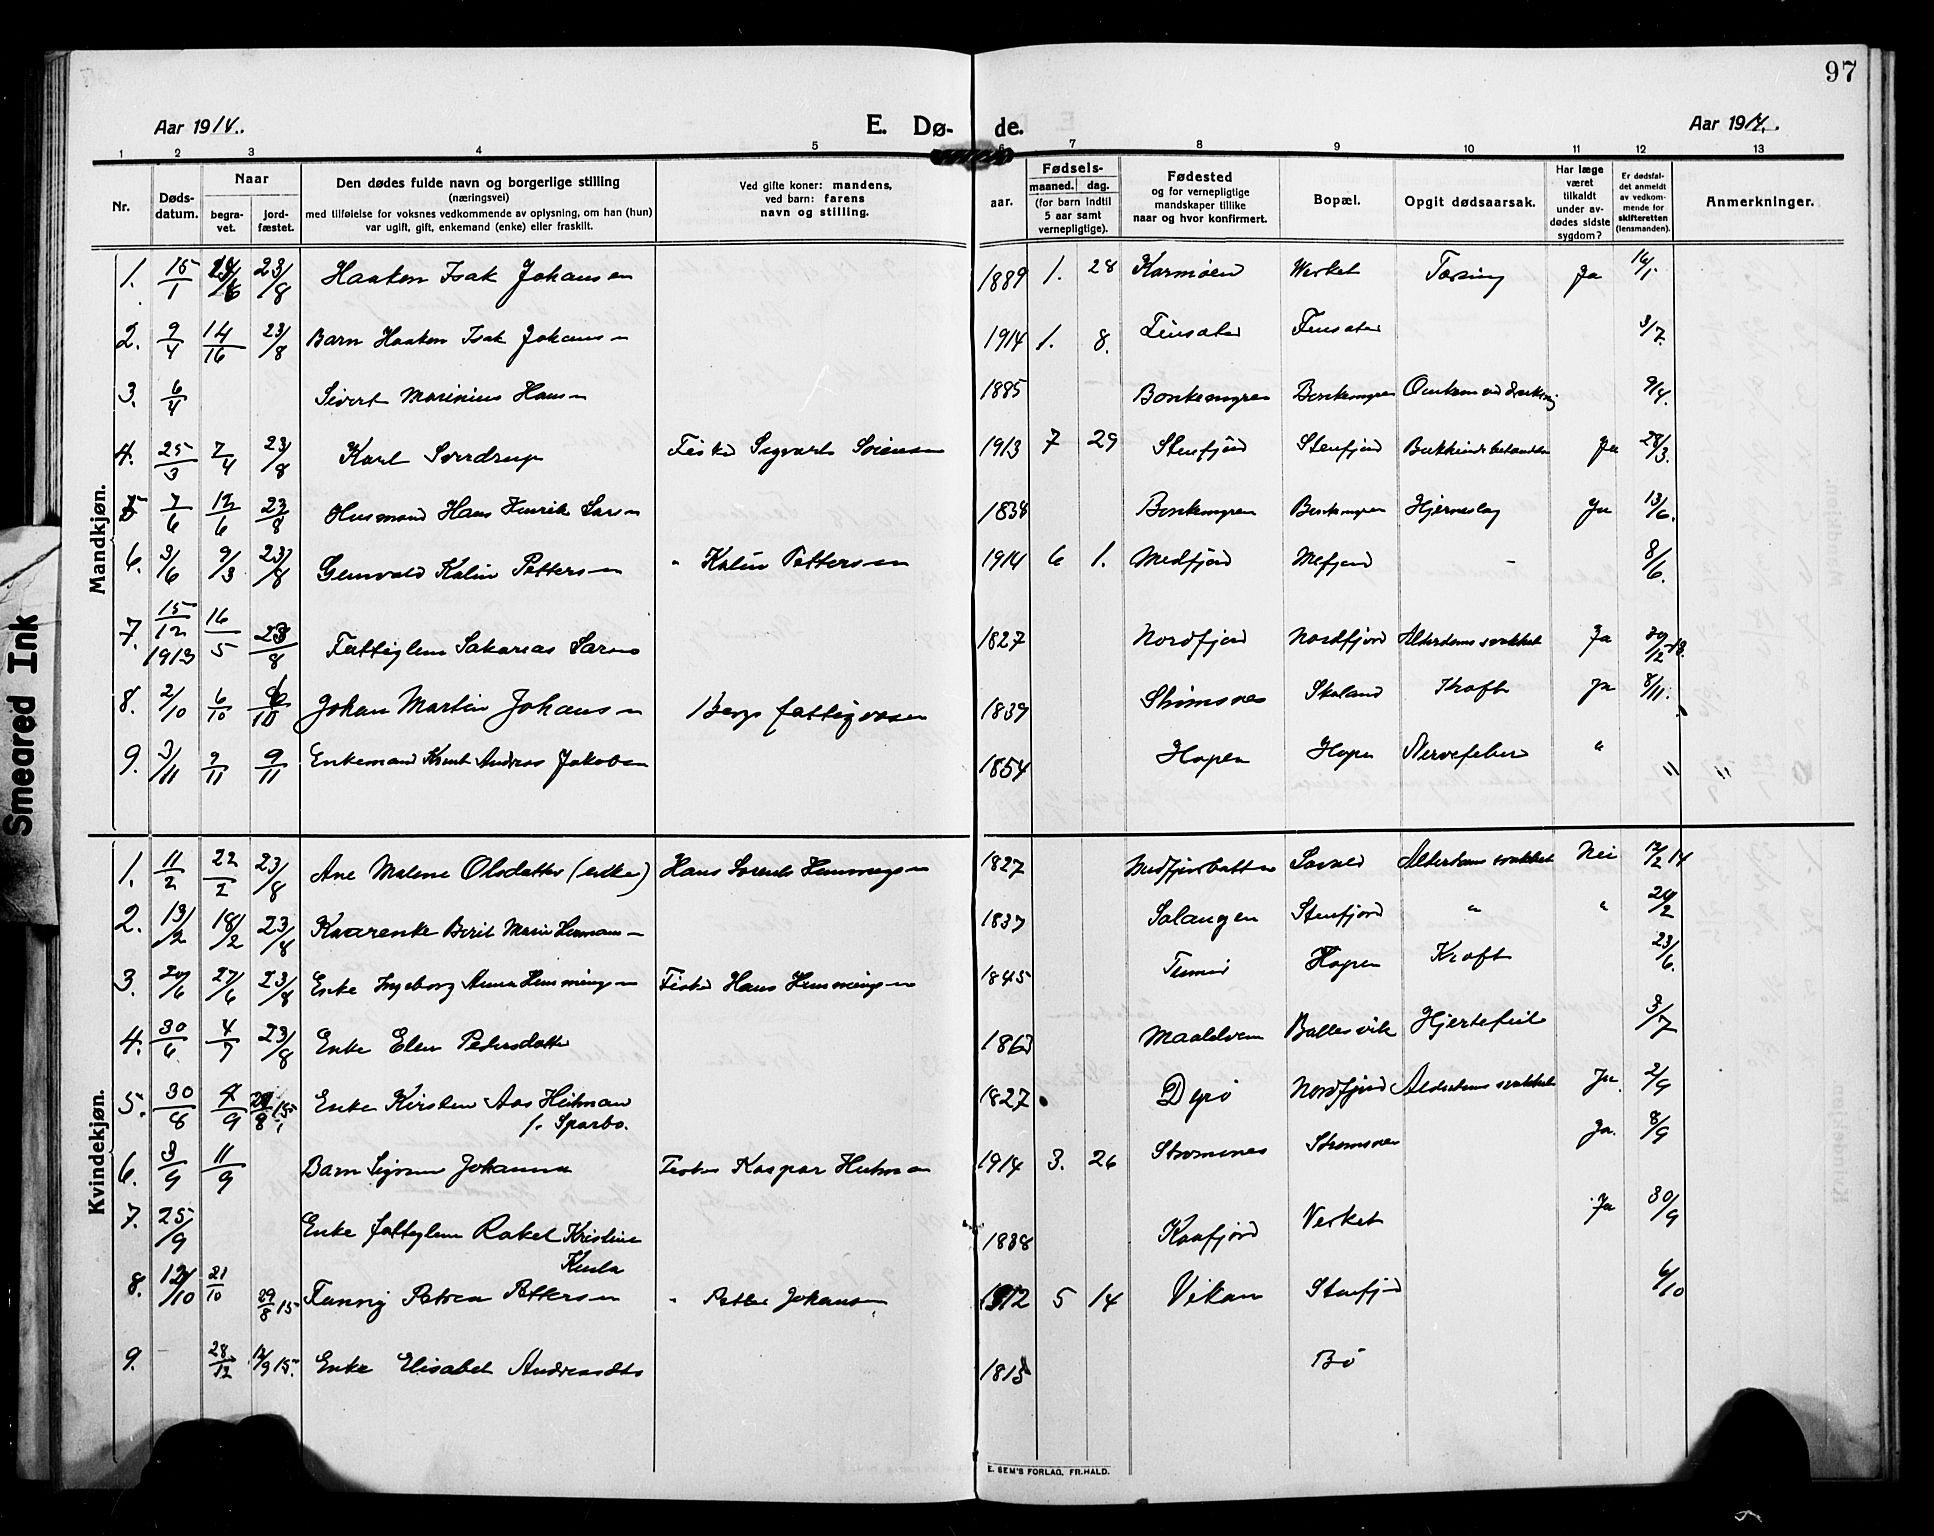 97
Aar 1914.
E. Dø- de.
Aar 1914.
1 2 3 4 5 6 7 8 9 10 11 12 13
Nr.
Døds-datum.
Naar
begra-vet.
jord-fæstet.
Den dødes fulde navn og borgerlige stilling
(næringsvei)
med tilføielse for voksnes vedkommende av oplysning, om han (hun)
var ugift, gift, enkemand (enke) eller fraskilt.
Ved gifte koner: mandens,
ved barn: farens
navn og stilling.
Fødsels-
aar.
maaned. dag.
(for barn indtil
5 aar samt
vernepligtige).
Fødested
og for vernepligtige
mandskaper tillike
naar og hvor konfirmert.
Bopæl.
Opgit dødsaarsak.
Har læge
været
tilkaldt
under av-
dødes sidste
sygdom?
Er dødsfal-
det anmeldt
av vedkom-
mende for
skifteretten
(lensmanden).
Anmerkninger.
Mandkjøn.
1. 15/1 23/8 Haakon Isak Johansen 1889 1. 28 Karmøen Verket Tæring Ja 16/1
2. 9/4 14/16 23/8 Barn Haakon Isak Johansen 1914 1. 8. Finsæter Finsæter 3/7.
3. 6/4 Sivert Marinius Hansen 1885 Bonkemyren Bonkemyren 9/4.
4. 25/3 7/4 23/8 Karl Sverdrup Fisker Sigvart Sørensen 1913 7 29 Stenfjord Stenfjord Ja 28/3.
5 7/6 12/6 23/8 Husmand Hans Henrik Larsen 1838 Bonkemyren Bonkemyren Hjerneslag Ja 13/6.
6. 3/6 9/3 23/8 Kalin Pettersen " Kalin Pettersen 1914 6 1. Medfjord Mefjord - 8/6.
7. 15/12 1913 16/5 23/8 Fattiglem Sakarias Larsen 1827 Nordfjord Nordfjord Alderdomssvakhet Ja
8. 2/10 6/10 Johan Martin Johansen Bergs fattigvæsen 1839 Strømsnes Skaland Kræft Ja 8/11.
9. 3/11 9/11 9/11 Enkemand Knut Andreas Jakobsen 1854 Hopen Hopen Nervefeber " " "
Kvindekjøn.
1. 11/2 22/2 23/8 Ane Malene Olsdatter (enke) Hans Lorents Hemmingsen 1827 Medfjordbotten Alderdomssvakhet Nei 17/2 14
2. 13/2 18/2 23/8 Kvarenke Berit Marie Hermansen 1837 Salangen Stenfjord " " 20/2
3. 20/6 27/6 23/8 Enke Ingeborg Anna Hemmingsen Fisker Hans Hemmingsen 1845 Hopen Kræft 23/6.
4. 30/6. 4/7 23/8 Enke Elen Pedersdatter 1863 Maalelven Ballesvik Hjertefeil 3/7
5. 30/8 4/9 29/8 15 Enke Kirsten Aas Heitman
f. Sparbo. 1827 Dyrø Nordfjord Alderdomssvakhet Ja 2/9
6. 3/9 11/9 Barn Signe Johanna Fisker Kaspar Heitman 1914 3. 26 Strømsnes Strømsnes Ja. 8/9
7. 25/9 Enke fattiglem Rakel Kristine 1838 Kaafjord Verket Ja 30/9
8. 12/10 21/10 29/8 15 Fanny Petrea Pettersen " Petter Johansen 1912 5 14 Vikan Stenfjord 6/10
9. - 28/12 12/9 15. Enke Elisabet Andreasdtr 1815 Bø
E. SEM'S FORLAG, FR.HALD.
Smeared Ink